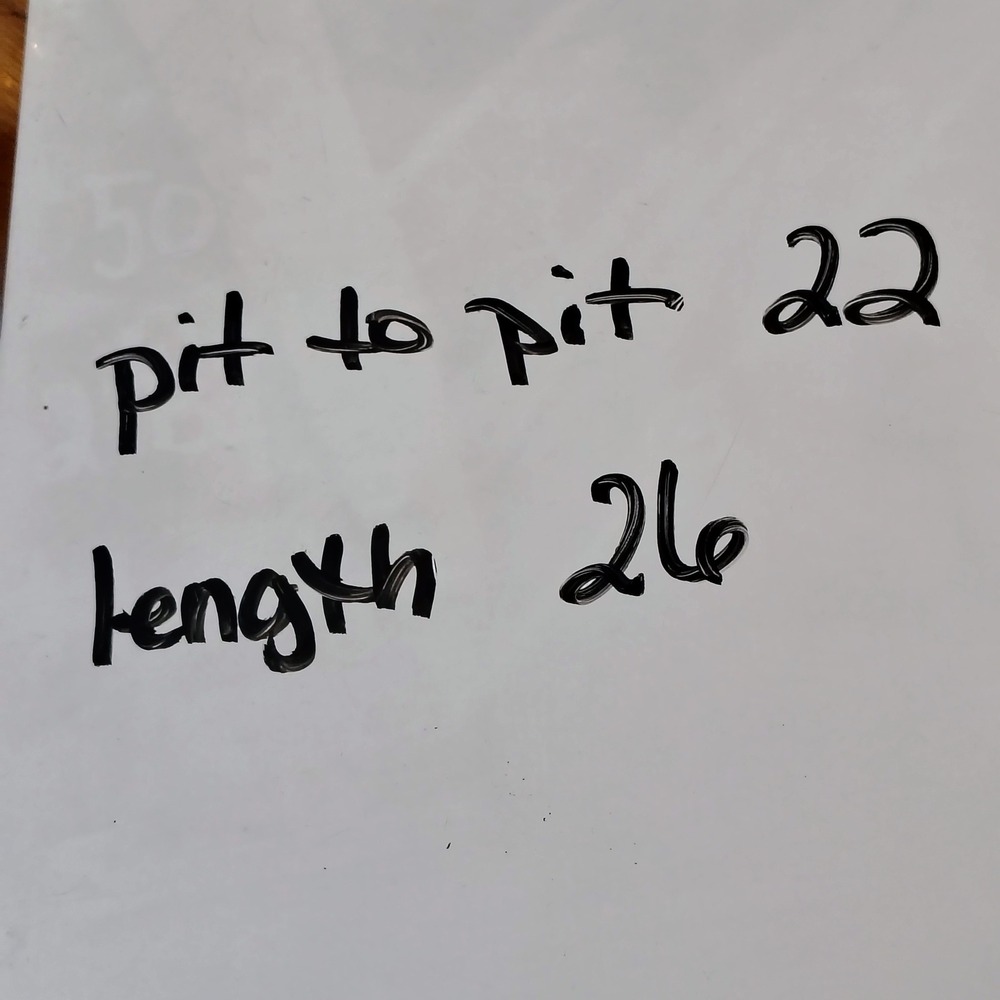 pit to pit 22
length 26